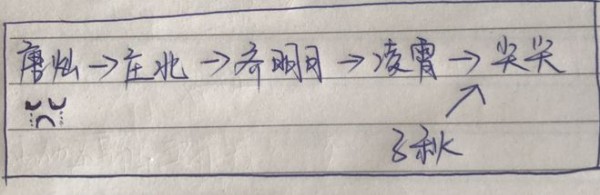 唐灿→庄北→齐明月→凌霄→尖尖
↗
子秋